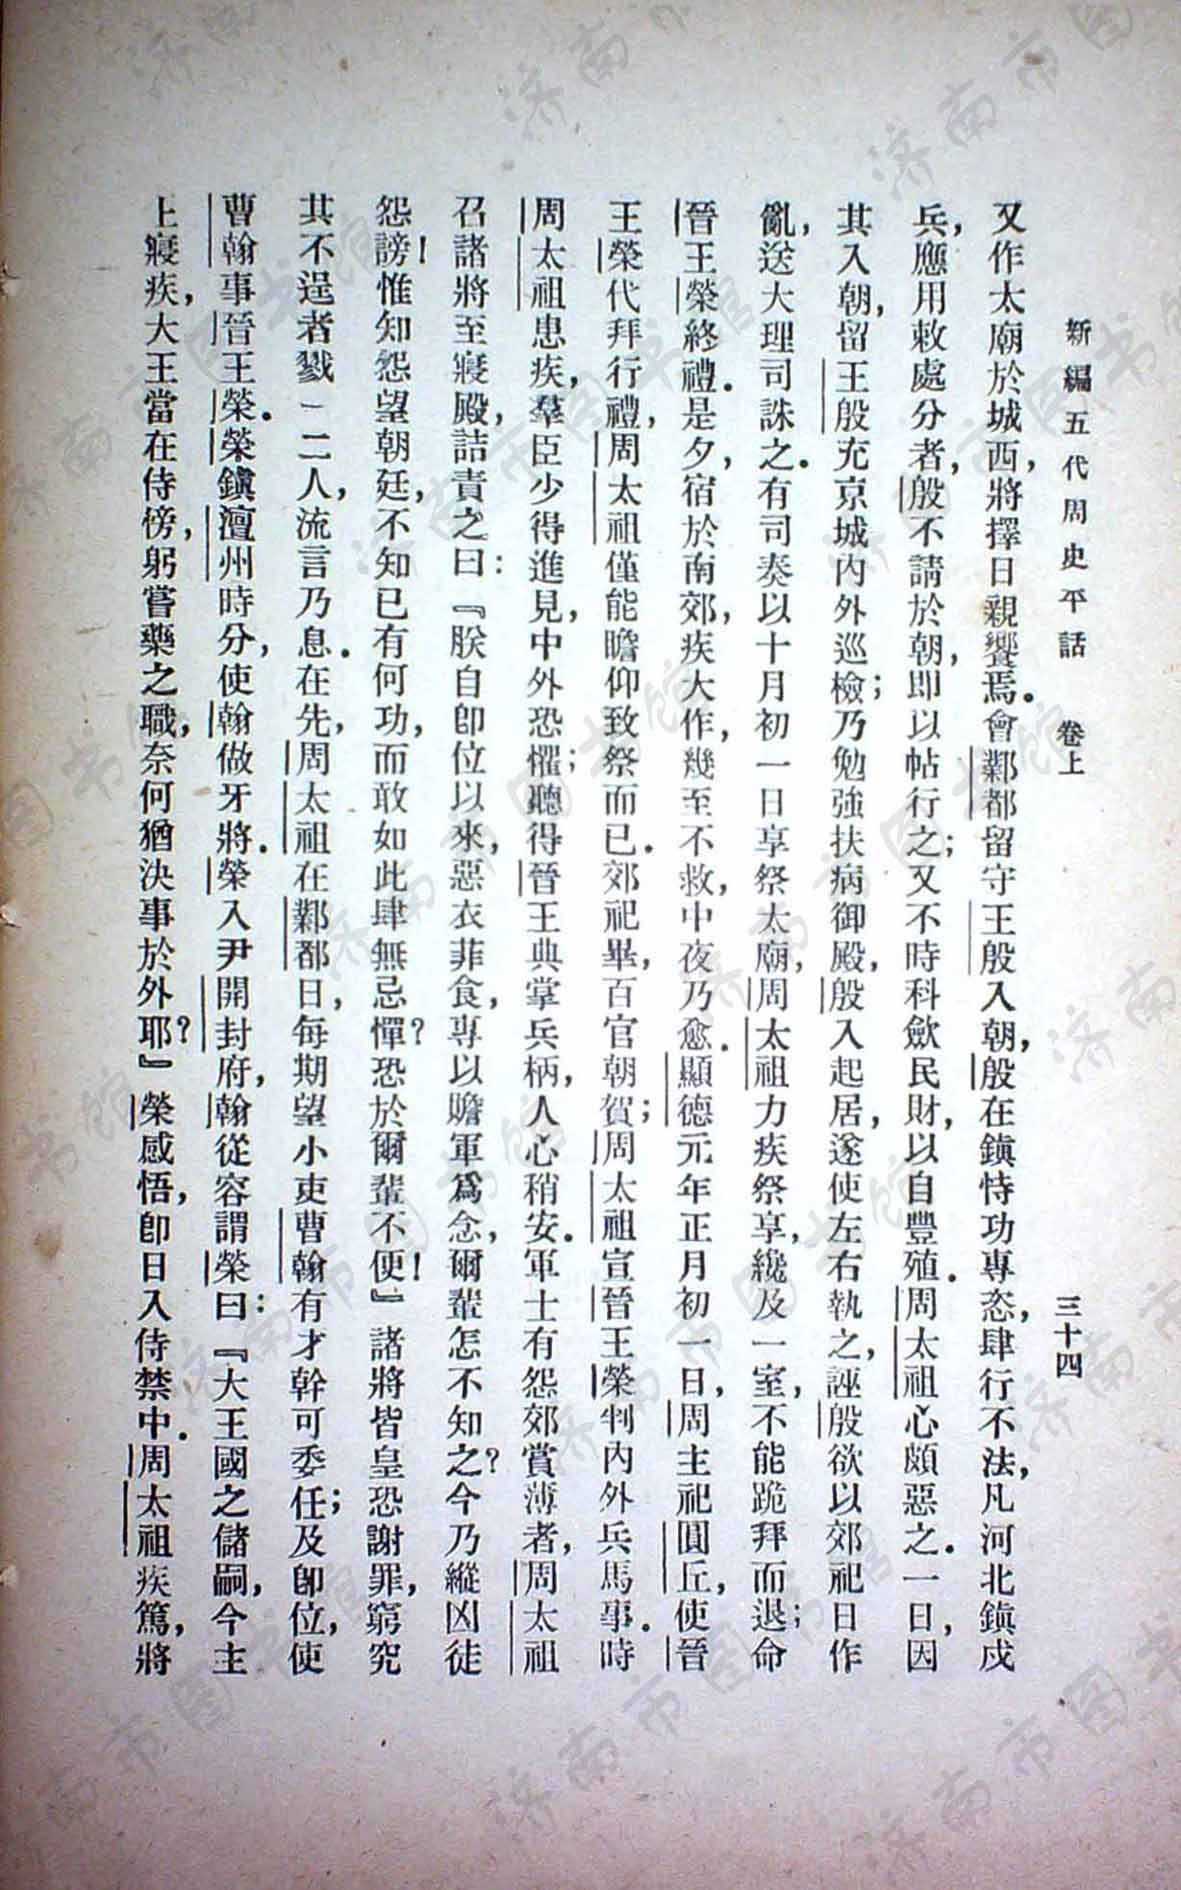 新編五代周史平話　卷上　三十四
又作太廟於城西，將擇日親饗焉。會鄴都留守王殷入朝，殷在鎮恃功專恣，肆行不法，凡河北鎮戍
兵，應用敕處分者，殷不請於朝，即以帖行之；又不時科歛民財，以自豐殖。周太祖心頗惡之。一日，因
其入朝，留王殷充京城內外巡檢；乃勉強扶病御殿，殷入起居，遂使左右執之，誣殷欲以郊祀日作
亂，送大理司誅之。有司奏以十月初一日享祭太廟，周太祖力疾祭享，纔及一室，不能跪拜而退；命
晉王榮終禮。是夕，宿於南郊，疾大作，幾至不救，中夜乃愈。顯德元年正月初一日，周主祀圓丘，使晉
王榮代拜行禮，周太祖僅能瞻仰致祭而已。郊祀畢，百官朝賀；周太祖宣晉王榮判內外兵馬事。時
周太祖患疾，羣臣少得進見，中外恐懼；聽得晉王典掌兵柄，人心稍安。軍士有怨郊賞薄者，周太祖
召諸將至寢殿，詰責之曰：『朕自卽位以來，惡衣菲食，專以贍軍爲念，爾輩怎不知之？今乃縱凶徒
怨謗！惟知怨望朝廷，不知已有何功，而敢如此肆無忌憚？恐於爾輩不便！』諸將皆皇恐謝罪，窮究
其不逞者戮一二人，流言乃息。在先，周太祖在鄴都日，每期望小吏曹翰有才幹可委任；及卽位，使
曹翰事晉王榮。榮鎮澶州時分，使翰做牙將。榮入尹開封府，翰從容謂榮曰：『大王國之儲嗣，今主
上寢疾，大王當在侍傍，躬嘗藥之職，奈何猶決事於外耶？』榮感悟，卽日入侍禁中。周太祖疾篤，將
济南市图书馆